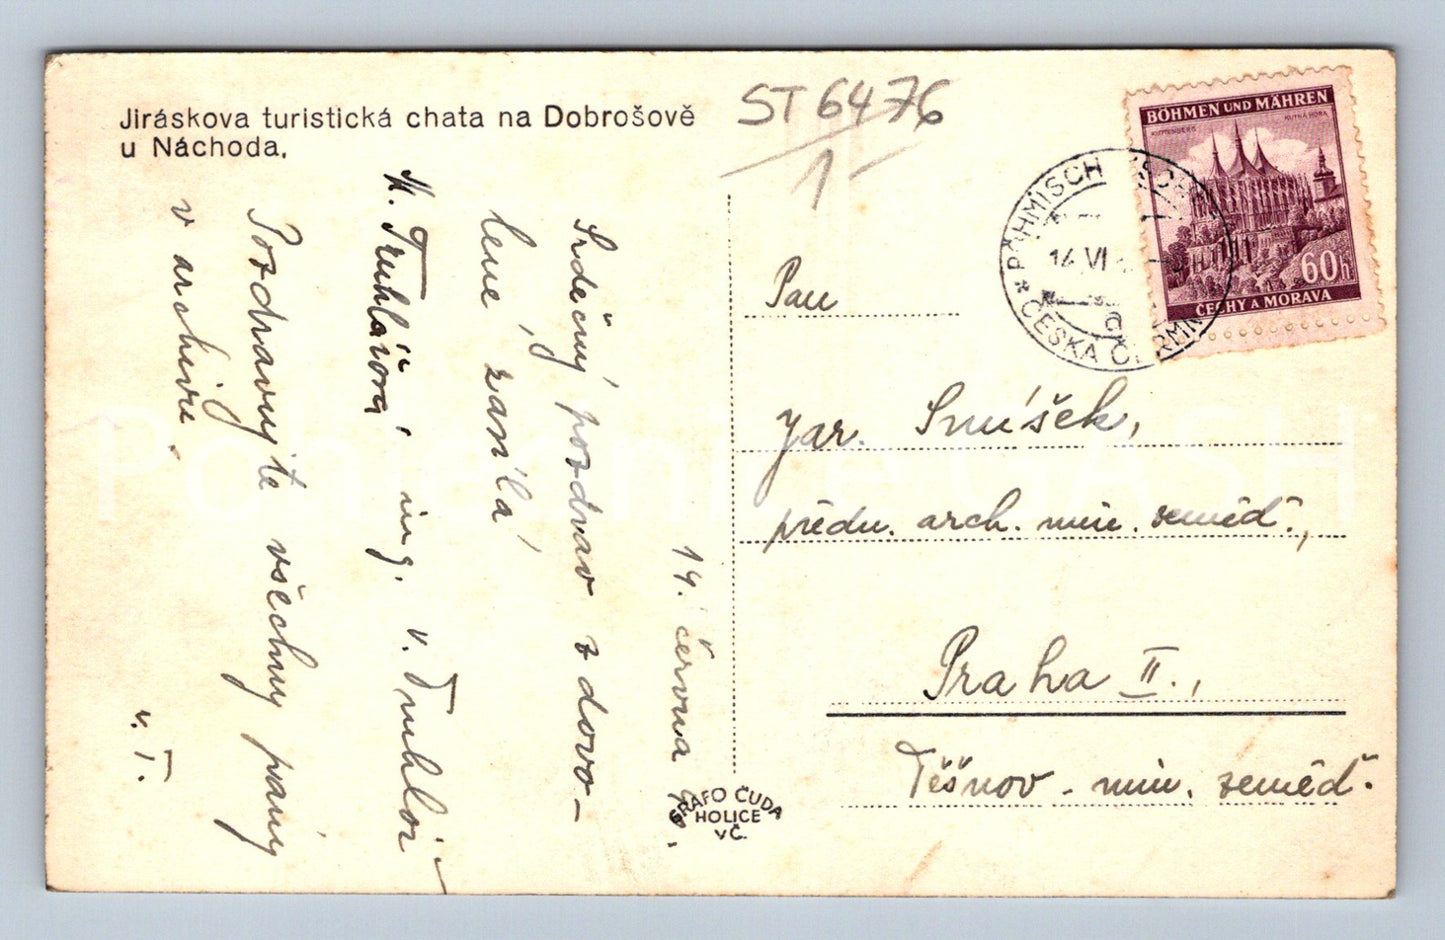 Jiráskova turistická chata na Dobrošově
u Náchoda,
ST 6476
1
BÖHMEN UND MÄHREN
KUTTENBERG
KUTNÁ HORA
60h
ČECHY A MORAVA
BÖHMISCH
14 VI
ČESKÁ ČERMN
14. června
Srdečný pozdrav z dovo-
lené zasílá
ing. v. Truhlář
M. Truhlářová
Pozdravujte všechny pány
v archivu.
v. T.
Pan
Jar. Smíšek,
předn. arch. min. zeměd.,
Praha II.,
Těšnov - min. zeměd.
GRAFO ČUDA
HOLICE
v Č.
Pohlednice GASH